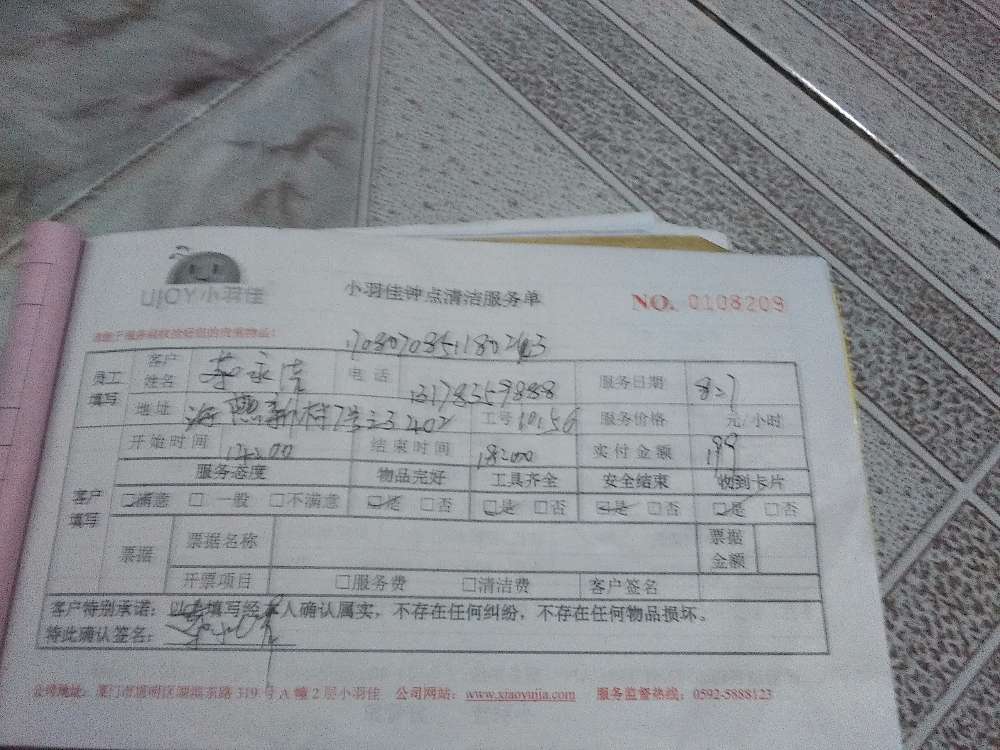 UJOY小羽佳
小羽佳钟点清洁服务单
NO. 0108209
员工填写
客户姓名
永
电话
13178359888
服务日期
8.7
地址
402
工号 10156
服务价格
元/小时
开始时间
14:00
结束时间
18:00
实付金额
199
服务态度
物品完好
工具齐全
安全结束
收到卡片
客户填写
□满意 □ 一般 □不满意
□是 □否
□是 □否
□是 □否
□是 □否
票据
票据名称
票据金额
开票项目
□服务费
□清洁费
客户签名
客户特别承诺：以上填写经本人确认属实，不存在任何纠纷，不存在任何物品损坏。
特此确认签名：
公司地址：厦门市思明区湖滨东路 319 号 A 幢 2 层小羽佳 公司网站：www.xiaoyujia.com 服务监督热线：0592-5888123